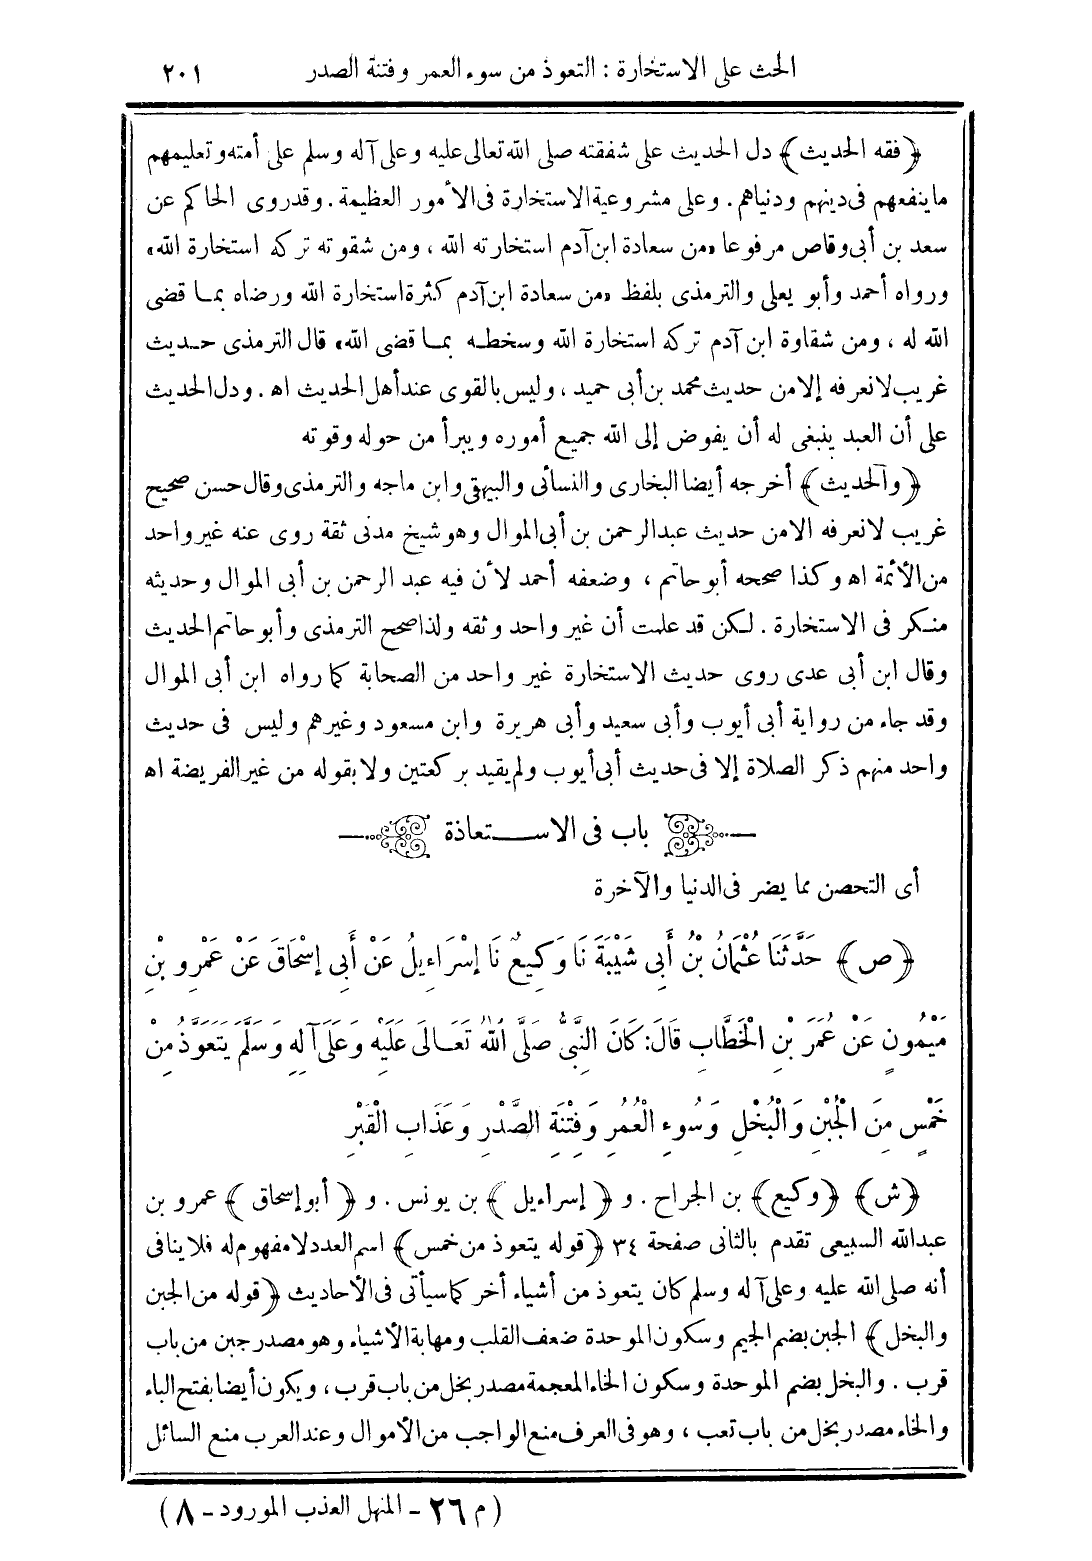 الحث على الاستخارة : التعوذ من سوء العمر وفتنة الصدر ٢٠١
﴿ فقه الحديث ﴾ دل الحديث على شفقته صلى الله تعالى عليه وعلى آله وسلم على أمته وتعليمهم
ما ينفعهم فى دينهم ودنياهم . وعلى مشروعية الاستخارة فى الأمور العظيمة . وقد روى الحاكم عن
سعد بن أبى وقاص مرفوعا «من سعادة ابن آدم استخارته الله ، ومن شقوته تركه استخارة الله»
ورواه أحمد وأبو يعلى والترمذى بلفظ «من سعادة ابن آدم كثرة استخارة الله ورضاه بما قضى
الله له ، ومن شقاوة ابن آدم تركه استخارة الله وسخطه بما قضى الله» قال الترمذى حديث
غريب لا نعرفه إلا من حديث محمد بن أبى حميد ، وليس بالقوى عند أهل الحديث اه . ودل الحديث
على أن العبد ينبغى له أن يفوض إلى الله جميع أموره ويبرأ من حوله وقوته
﴿ والحديث ﴾ أخرجه أيضا البخارى والنسائى والبيهقى وابن ماجه والترمذى وقال حسن صحيح
غريب لا نعرفه الا من حديث عبد الرحمن بن أبى الموال وهو شيخ مدنى ثقة روى عنه غير واحد
من الأئمة اه وكذا صححه أبو حاتم ، وضعفه أحمد لأن فيه عبد الرحمن بن أبى الموال وحديثه
منكر فى الاستخارة . لكن قد علمت أن غير واحد وثقه ولذا صحح الترمذى وأبو حاتم الحديث
وقال ابن أبى عدى روى حديث الاستخارة غير واحد من الصحابة كما رواه ابن أبى الموال
وقد جاء من رواية أبى أيوب وأبى سعيد وأبى هريرة وابن مسعود وغيرهم وليس فى حديث
واحد منهم ذكر الصلاة إلا فى حديث أبى أيوب ولم يقيد بركعتين ولا بقوله من غير الفريضة اه
باب فى الاستعاذة
أى التحصن مما يضر فى الدنيا والآخرة
﴿ ص ﴾ حَدَّثَنَا عُثْمَانُ بْنُ أَبِى شَيْبَةَ نَا وَكِيعٌ نَا إِسْرَاءِيلُ عَنْ أَبِى إِسْحَاقَ عَنْ عَمْرِو بْنِ
مَيْمُونٍ عَنْ عُمَرَ بْنِ الْخَطَّابِ قَالَ: كَانَ النَّبِىُّ صَلَّى اللهُ تَعَالَى عَلَيْهِ وَعَلَى آلِهِ وَسَلَّمَ يَتَعَوَّذُ مِنْ
خَمْسٍ مِنَ الْجُبْنِ وَالْبُخْلِ وَسُوءِ الْعُمُرِ وَفِتْنَةِ الصَّدْرِ وَعَذَابِ الْقَبْرِ
﴿ ش ﴾ ﴿ وكيع ﴾ بن الجراح . و ﴿ إسراءيل ﴾ بن يونس . و ﴿ أبو إسحاق ﴾ عمرو بن
عبدالله السبيعى تقدم بالثانى صفحة ٣٤ ﴿ قوله يتعوذ من خمس ﴾ اسم العدد لا مفهوم له فلا ينافى
أنه صلى الله عليه وعلى آله وسلم كان يتعوذ من أشياء أخر كما سيأتى فى الأحاديث ﴿ قوله من الجبن
والبخل ﴾ الجبن بضم الجيم وسكون الموحدة ضعف القلب ومهابة الأشياء وهو مصدر جبن من باب
قرب . والبخل بضم الموحدة وسكون الخاء المعجمة مصدر بخل من باب قرب ، ويكون أيضا بفتح الباء
والخاء مصدر بخل من باب تعب ، وهو فى العرف منع الواجب من الأموال وعند العرب منع السائل
( م ٢٦ - المنهل العذب المورود - ٨ )